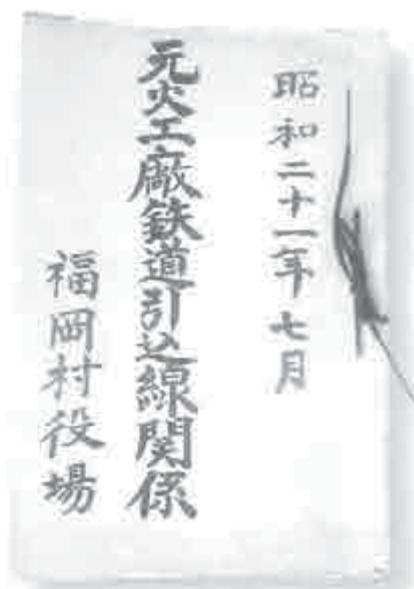 昭和二十一年七月
元火工廠鉄道引込線関係
福岡村役場